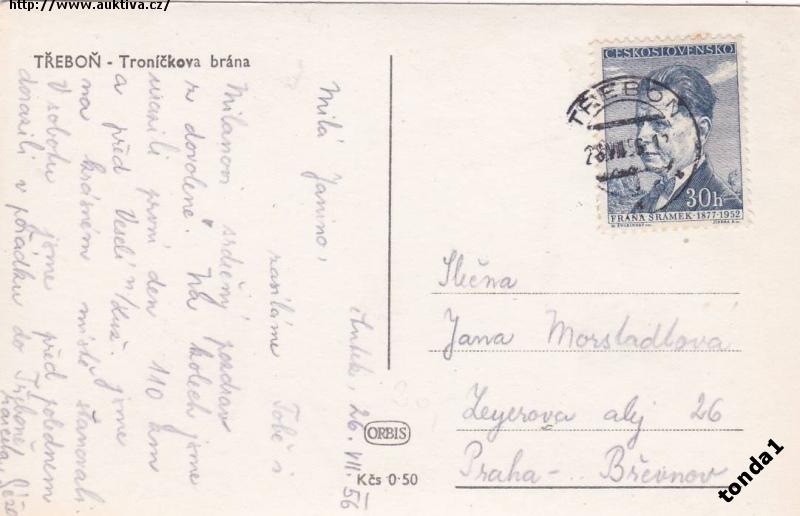 http://www.auktiva.cz/
TŘEBOŇ - Troníčkova brána
ČESKOSLOVENSKO
30h
FRÁŇA ŠRÁMEK · 1877-1952
TŘEBOŇ
28.VII.56
26. VII. 56
Milá Janino,
zasíláme Tobě i
Milanovi srdečný pozdrav
z dovolené. Na kolech jsme
urazili první den 110 km
a před Veselí n/Luž. jsme
na krásném místě stanovali.
V sobotu jsme před polednem
dorazili v pořádku do Třeboně
Slečna
Jana Morstadtová
Zeyerova alej 26
Praha - Břevnov
ORBIS
Kčs 0·50
tonda1